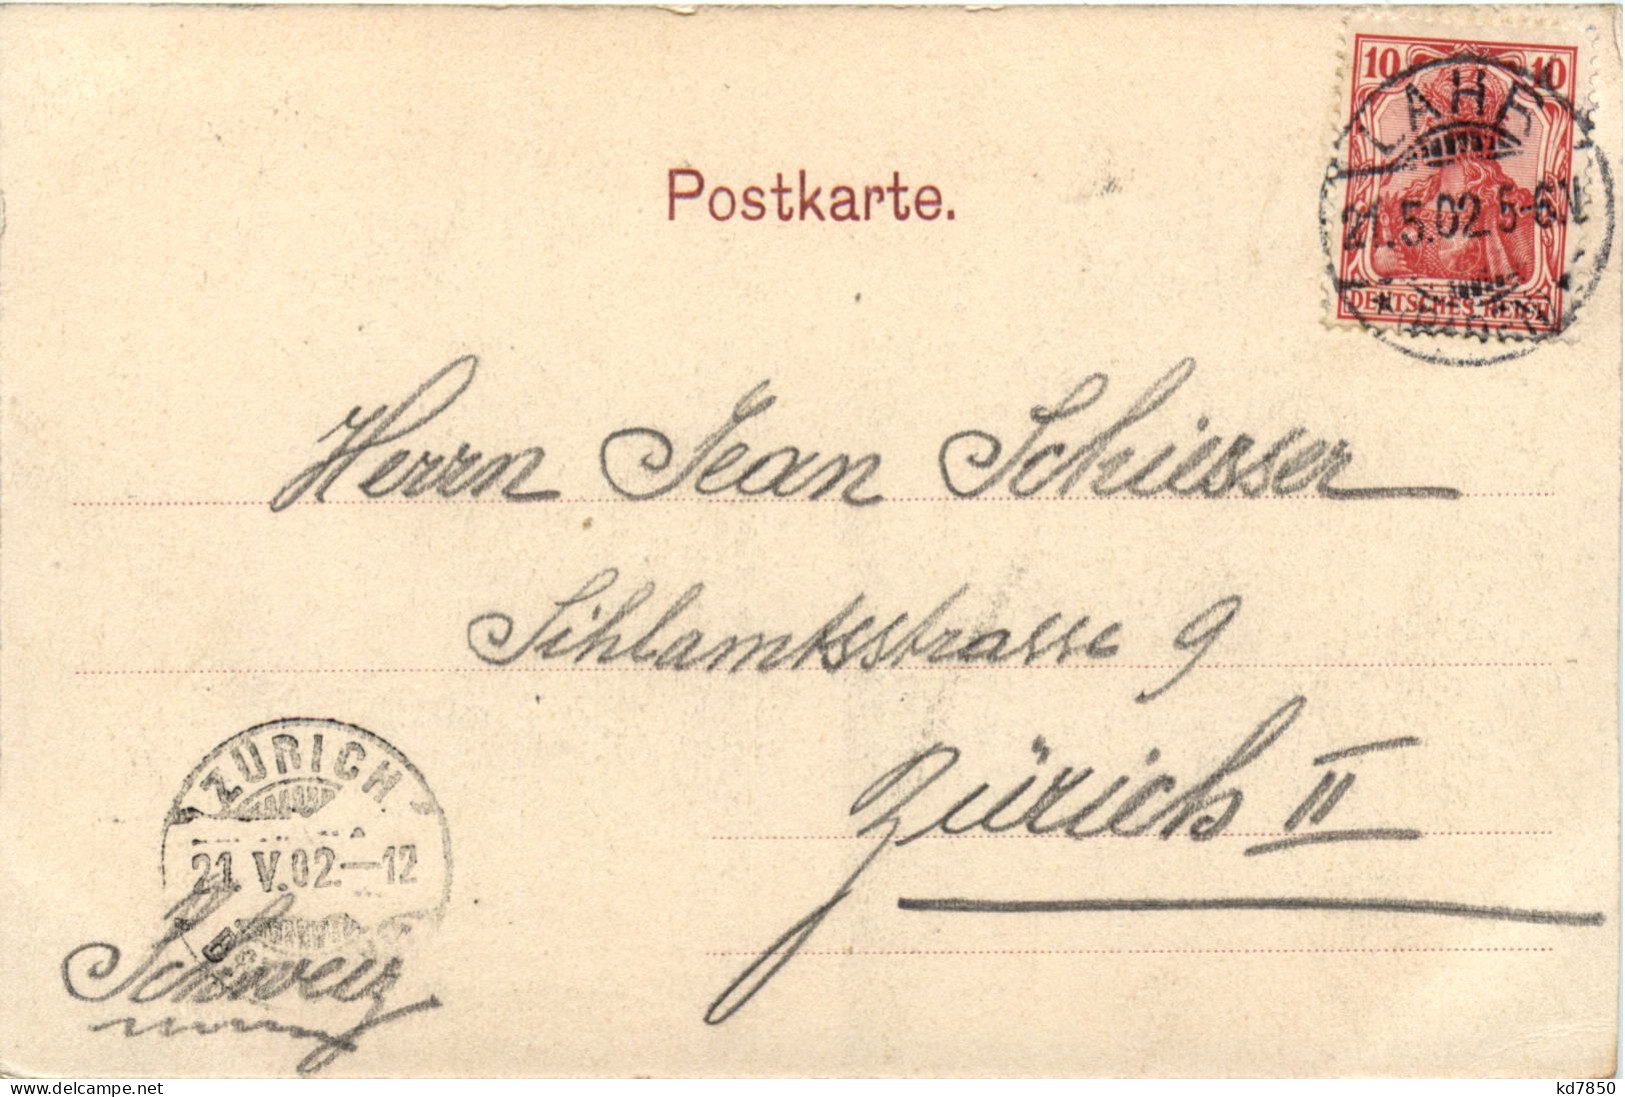 10 10
LAHR
21.5.02 5-6V
(BADEN)
DEUTSCHES REICH
Postkarte.
Herrn Jean Schiesser
Sihlamtsstrasse 9
Zürich II
ZÜRICH
21. V. 02.-12
Schweiz
www.delcampe.net
kd7850